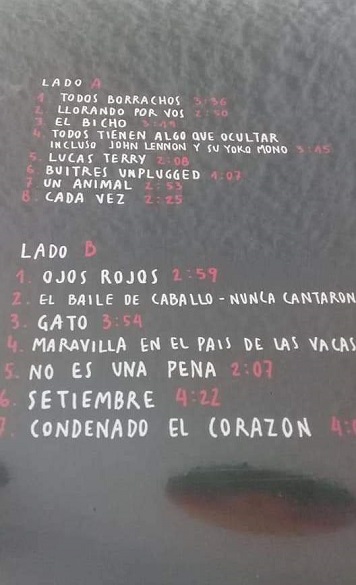 LADO A
1. TODOS BORRACHOS 3:36
2. LLORANDO POR VOS 2:50
3. EL BICHO 3:49
4. TODOS TIENEN ALGO QUE OCULTAR
INCLUSO JOHN LENNON Y SU YOKO MONO 3:45
5. LUCAS TERRY 2:08
6. BUITRES UNPLUGGED 1:07
7 UN ANIMAL 2:53
8. CADA VEZ 2:25
LADO B
1. OJOS ROJOS 2:59
2. EL BAILE DE CABALLO - NUNCA CANTARON
3. GATO 3:54
4. MARAVILLA EN EL PAIS DE LAS VACAS
5. NO ES UNA PENA 2:07
6. SETIEMBRE 4:22
7. CONDENADO EL CORAZON